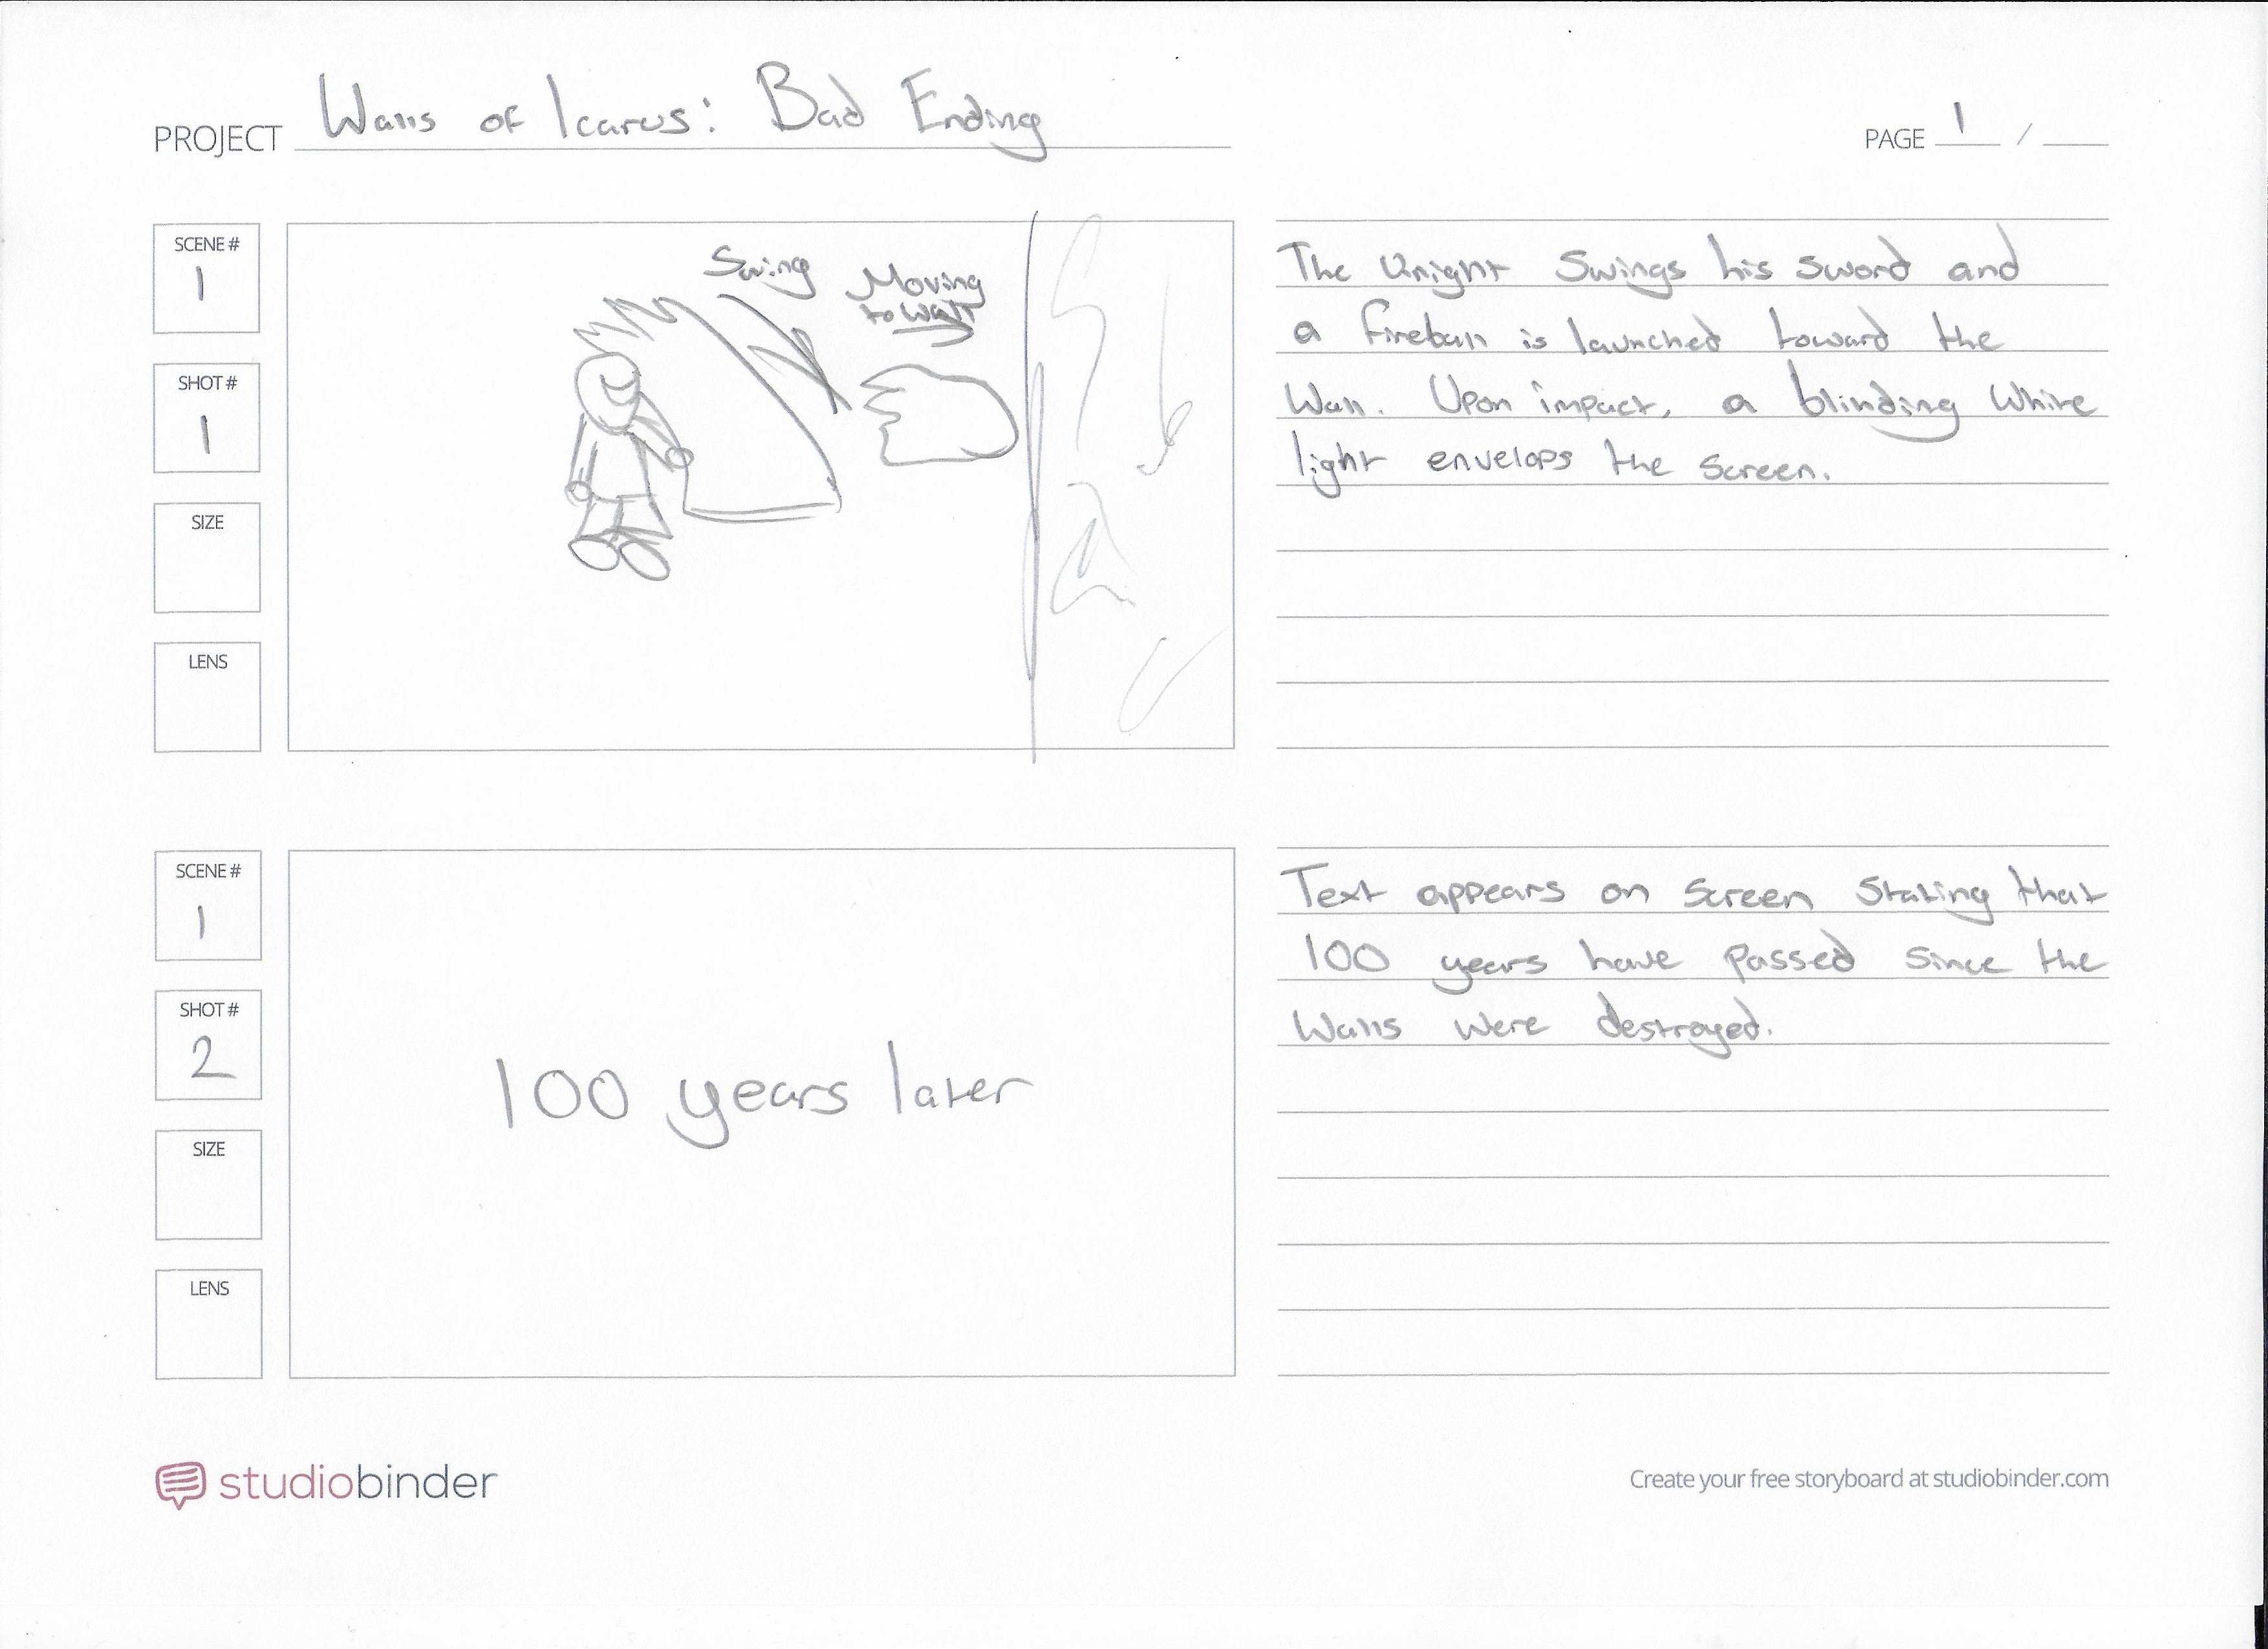 PROJECT Walls of Icarus: Bad Ending
PAGE 1 /
SCENE #
1
SHOT #
1
SIZE
LENS
Swing
Moving
to wall
The Knight Swings his sword and
a fireball is launched toward the
Wall. Upon impact, a blinding White
light envelops the screen.
SCENE #
1
SHOT #
2
SIZE
LENS
100 years later
Text appears on Screen Stating that
100 years have passed since the
Walls were destroyed.
studiobinder
Create your free storyboard at studiobinder.com